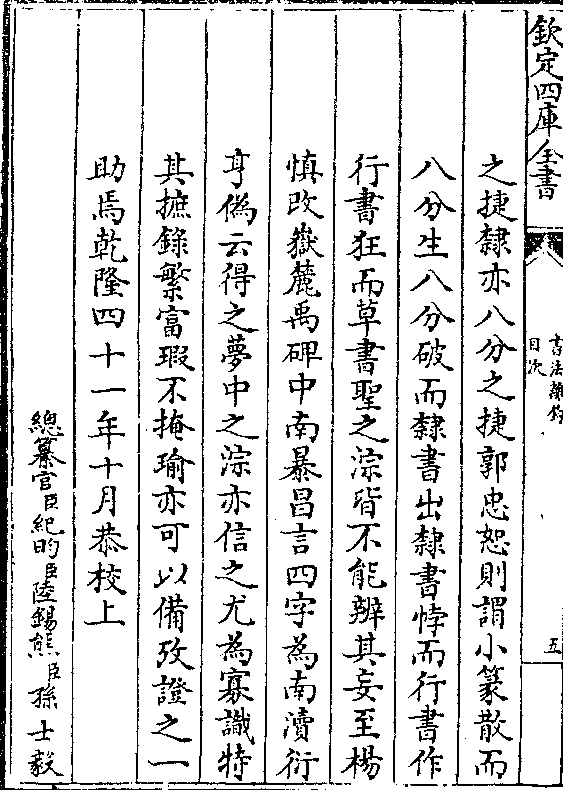 欽定四庫全書
書法離鉤
目次
五
之捷隸亦八分之捷郭忠恕則謂小篆散而
八分生八分破而隸書出隸書悖而行書作
行書狂而草書聖之淙皆不能辨其妄至楊
慎改嶽麓禹碑中南暴昌言四字為南瀆衍
亨偽云得之夢中之淙亦信之尤為寡識特
其摭錄繁富瑕不掩瑜亦可以備攷證之一
助焉乾隆四十一年十月恭校上
總纂官臣紀昀臣陸錫熊臣孫士毅